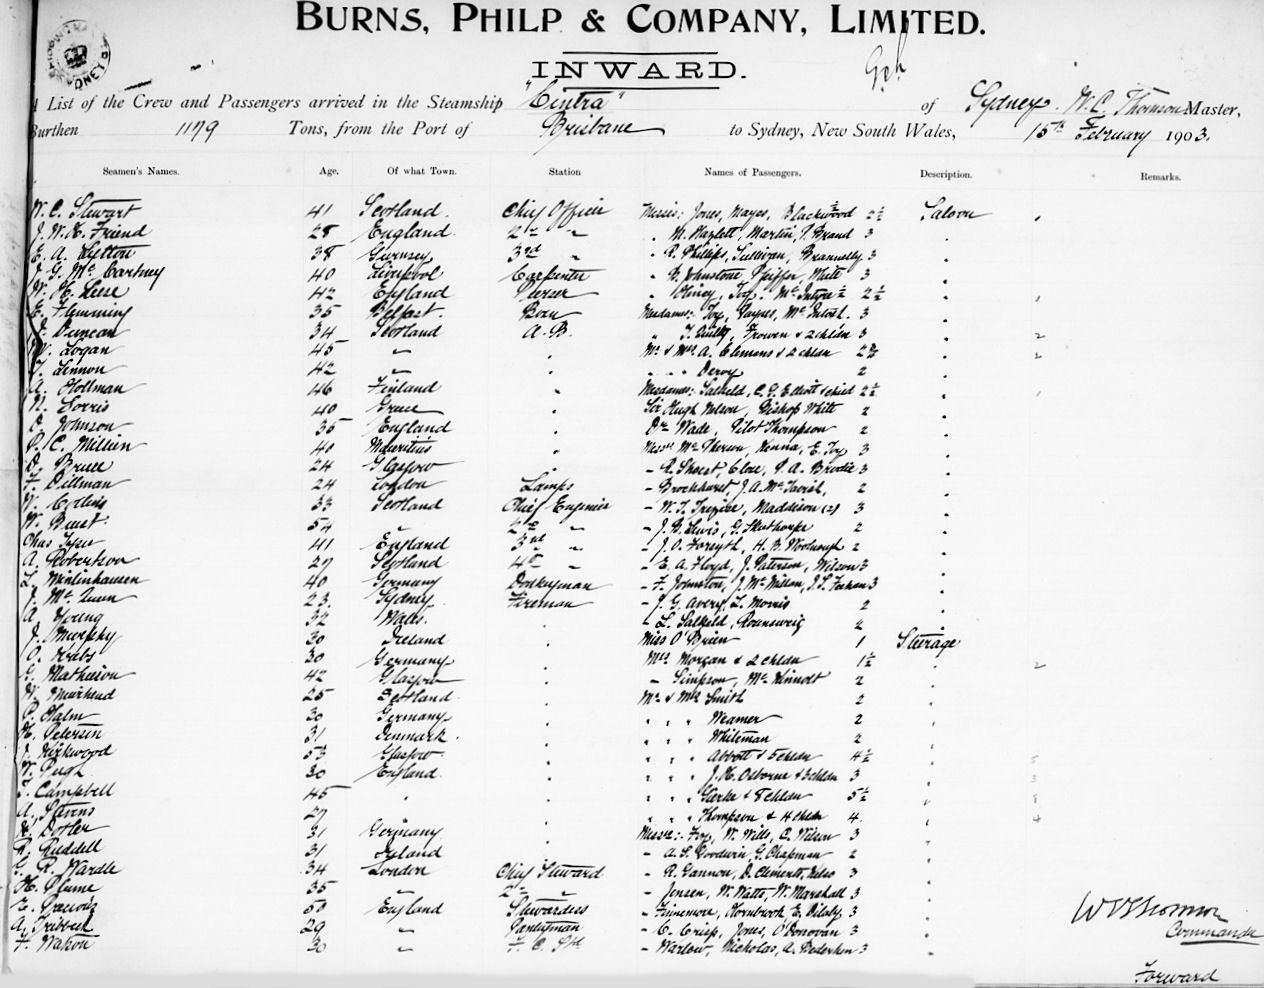 BURNS, PHILP & COMPANY, LIMITED.
INWARD.
List of the Crew and Passengers arrived in the Steamship "Cintra" of Sydney. W. C. Thomson Master,
Burthen 1179 Tons, from the Port of Brisbane to Sydney, New South Wales, 15th February 1903.
Seamen's Names. Age. Of what Town. Station Names of Passengers. Description. Remarks.
W. C. Stewart 41 Scotland. Chief Officer Messrs: Jones, Mayes, Blackwood 2½ Saloon
J. W. H. Friend 28 England. 2nd " " M. Hazlett, Martin, J. Brand 3
E. A. Lytton 38 Gurnsey 3rd " " R. Phillips, Sullivan, Brannelly 3
J. G. McCartney 40 Liverpool Carpenter " B. Johnstone, Pfiffer, Muir 3
W. H. Leese 42 England Purser " Olivey, Foy. McIntyre 2½
E. Flemming 35 Belfast. Bosn Mesdames: Foy, Paynes, McIntosh. 3
J. Duncan 34 Scotland A. B. " Frowen & 2 chldn 3 2
W. Logan 45 " Mr & Mrs A. Clemens & 2 chldn 2
J. Lennon 42 " Dervy 2
A. Hollman 46 Finland Mesdames: Salkeld, C. E. Elliott & child 2½
N. Sorris 40 Greece Sir Hugh Nelson, Bishop White 2
O. Johnson 35 England Dr. Wade, Pilot Thompson 2
P. C. Millien 40 Mauritius Messrs McPherson, Kenna, E. Foy 3
D. Bruce 24 Glasgow - R. Short, Cloe, J. A. Brodie 3
F. Dillman 24 London Lamps - Brockhurst, J. A. McTavish, 2
W. Collins 33 Scotland Chief Engineer - W. J. Trezise, Maddison (2) 3
W. Buist 54 " 2nd " - J. B. Lewis, G. 2
Chas 41 England 3rd " - J. O. Forsyth, H. B. 2
A. Robertson 27 Scotland 4th " - E. A. Floyd, J. Paterson, Wilson 3
L. Winlinhausen 40 Germany Donkeyman - F. Johnston, J. McMillan, J. L. 3
J. McQueen 23 Sydney Fireman - J. G. Avery, L. Morris 2
A. Young 32 Wales. - L. Salkeld, Rounsweig 2
J. Murphy 30 Ireland Miss O'Brien 1 Steerage
O. Krebs 30 Germany Mrs Morgan & 2 chldn 1½ 2
G. Mathieson 42 Glasgow - Simpson, McKinnolt 2
W. Muirhead 25 Scotland Mr & Mrs Smith 2
P. Halm 30 Germany " " " Weamer 2
H. Petersen 31 Denmark. " " " Whiteman 2
J. Kirkwood 53 Glasgow " " " Abbott & 5 chldn 4½ 5
W. Pugh 30 England. " " " J. H. Osborne & 3 chldn 3 3
J. Campbell 45 " " " " Clarke & 8 chldn 5½ 8
A. Stevens 27 " " " Thompson & 4 chldn 4. 4
H. Dotler 31 Germany Messrs: Foy, W. Wills, C. Wilson 3
R. Ruddell 31 Ireland - A. S. Goodwin, G. Chapman 2
G. R. Wardle 34 London Chief Steward - R. Gannon, D. Clements, Kelso 3
H. Plume 35 " 2nd " - Jensen, W. Watts, W. Marshall 3
E. 50 England Stewardess - Finnemore, Hornbrook, E. 3
A. Trebeck 29 " Pantryman - C. Crisp, Jones, O'Donovan 3
F. Watson 30 " F. C. Std - Warlow, Nicholas, A. Pederson 3
Commander
Forward